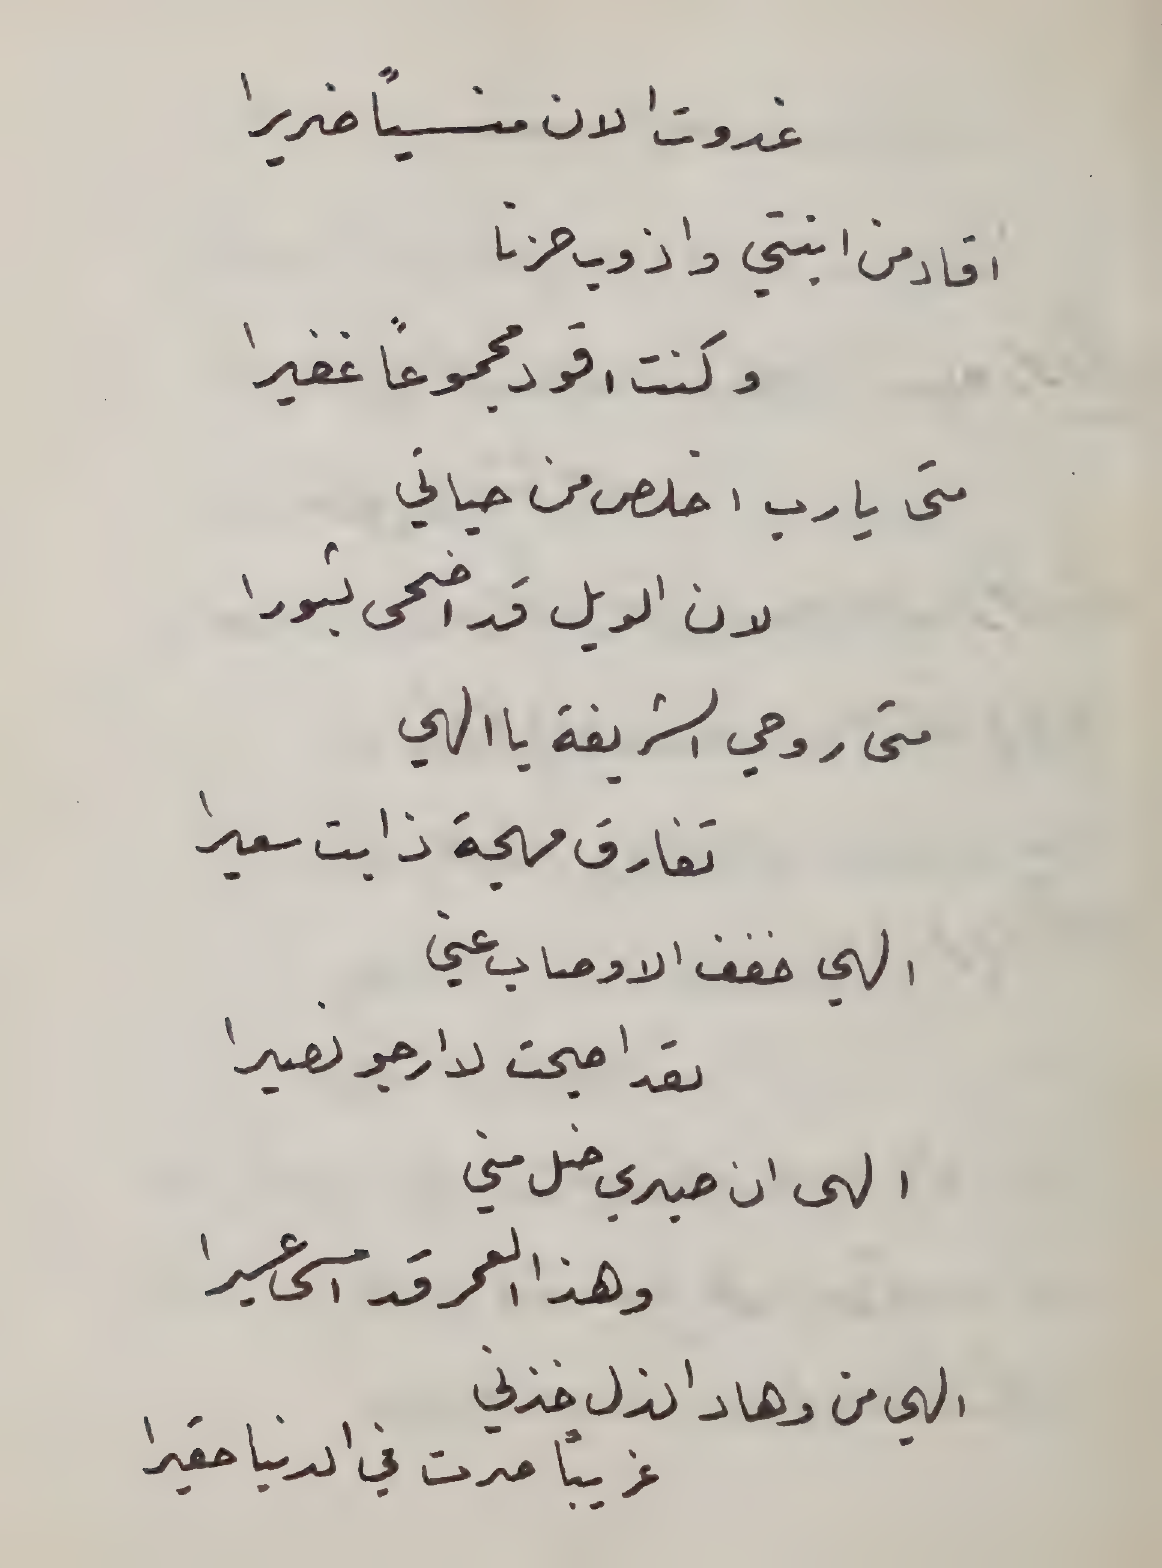 غدوت الان منسياً ضريرا
اقاد من ابنتي واذوب حزنا
وكنت اقود مجموعاً غفيرا
متى يارب اخلص من حياتي
لان الويل قد اضحى ثبورا
متى روحي الشريفة يا الهي
تفارق مهجة ذابت سعيرا
الهي خفف الاوصاب عني
لقد اصبحت لا ارجو نصيرا
الهى ان صبري ضل مني
وهذا العمر قد امسى عسيرا
الهي من وهاد الذل خذني
غريباً صرت في الدنيا حقيرا